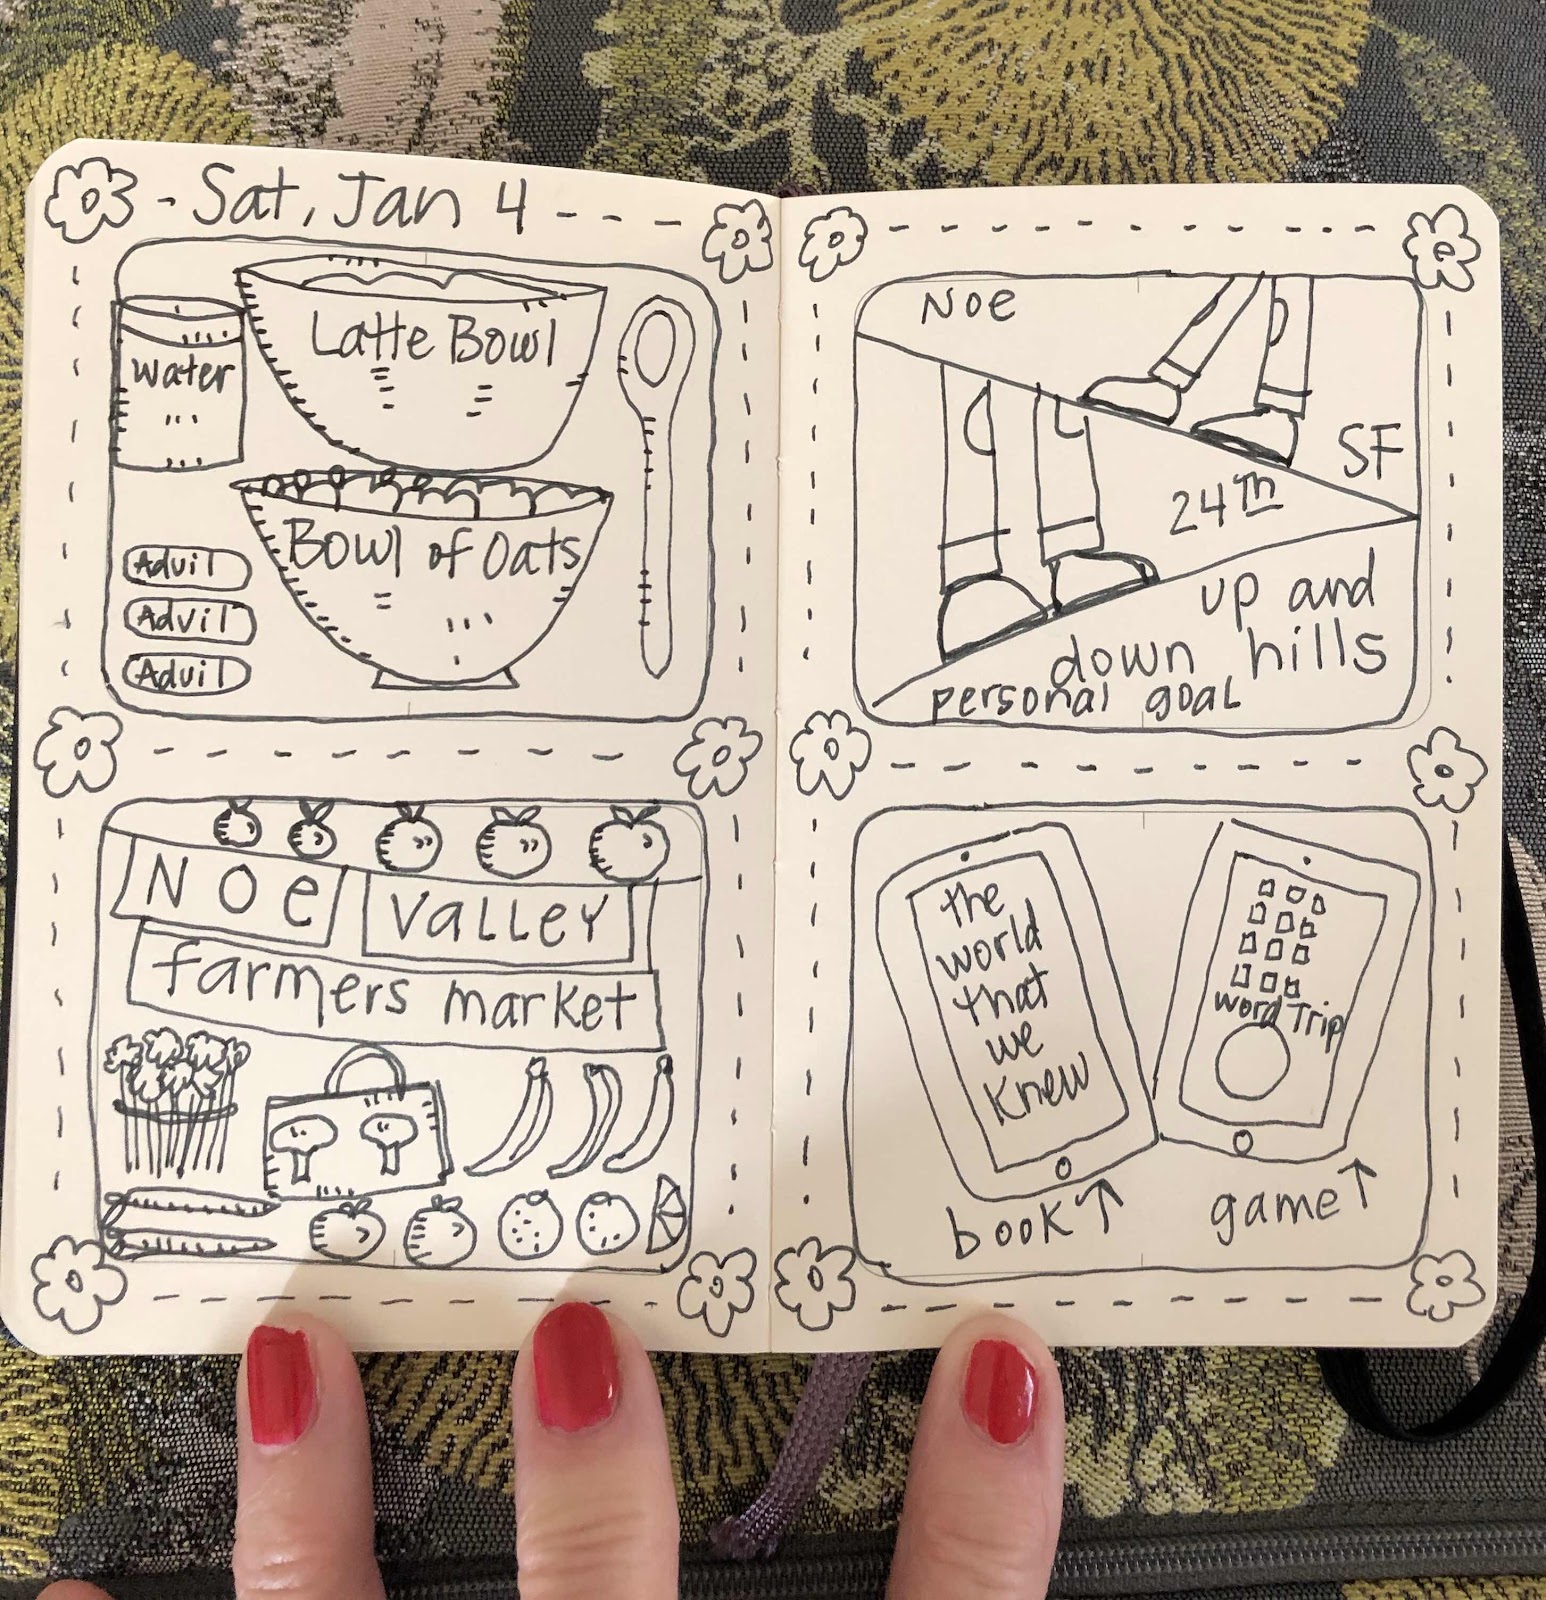 - Sat, Jan 4 - - -
Latte Bowl
water
Bowl of Oats
Advil
Advil
Advil
Noe
Valley
farmers market
Noe
SF
24th
up and
down hills
personal goal
the
world
that
we
knew
book ↑
word Trip
game ↑